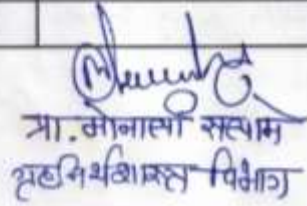 प्रा. मोनाली सत्यम
गृहअर्थशास्त्र विभाग